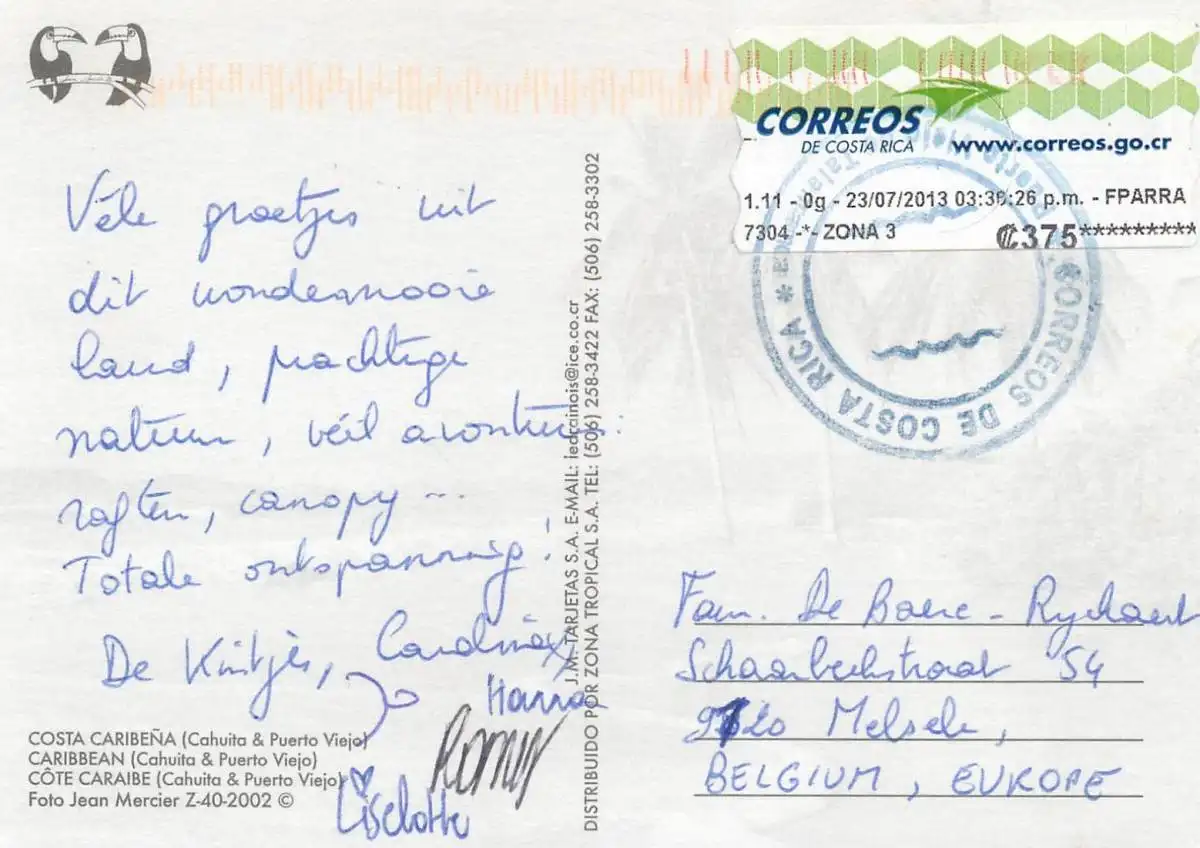 Véle groetjes uit
dit wondermooie
land, prachtige
natuur, véél avontuur:
raften, canopy ...
Totale ontspanning!
De Kintjes,
Hanna
Romy
Liselotte
COSTA CARIBEÑA (Cahuita & Puerto Viejo)
CARIBBEAN (Cahuita & Puerto Viejo)
CÔTE CARAIBE (Cahuita & Puerto Viejo)
Foto Jean Mercier Z-40-2002 ©
J.M. TARJETAS S.A. E-MAIL: iedcainois@ice.co.cr
DISTRIBUIDO POR ZONA TROPICAL S.A. TEL: (506) 258-3422 FAX: (506) 258-3302
CORREOS
DE COSTA RICA
www.correos.go.cr
1.11 - 0g - 23/07/2013 03:36:26 p.m. - FPARRA
7304 -*- ZONA 3
₡375*********
CORREOS DE COSTA RICA *
Fam. De Baere - Rychaert
Schaarbeekstraat 54
9120 Melsele,
BELGIUM, EUROPE